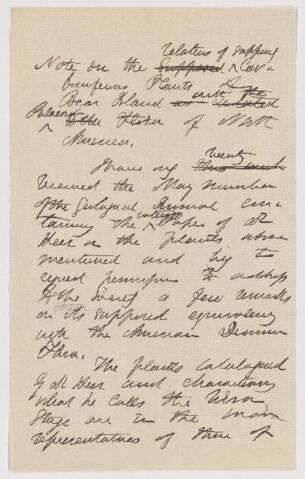 relations of supposed
Note on the Supposed Car-
boniferous Plants of
Bear Island with the
Palaeozoic Flora of North
America.
Having recently
received the May number
of the Geological Journal con-
taining the Paper of Dr
Heer on the plants above
mentioned and beg to
request permission to address
to the Society a few remarks
on its supposed equivalency
with the American Devonian
Flora.
The plants catalogued
by Dr Heer and characterizing
what he calls the Ursa
Stage are in the main
representatives of those of